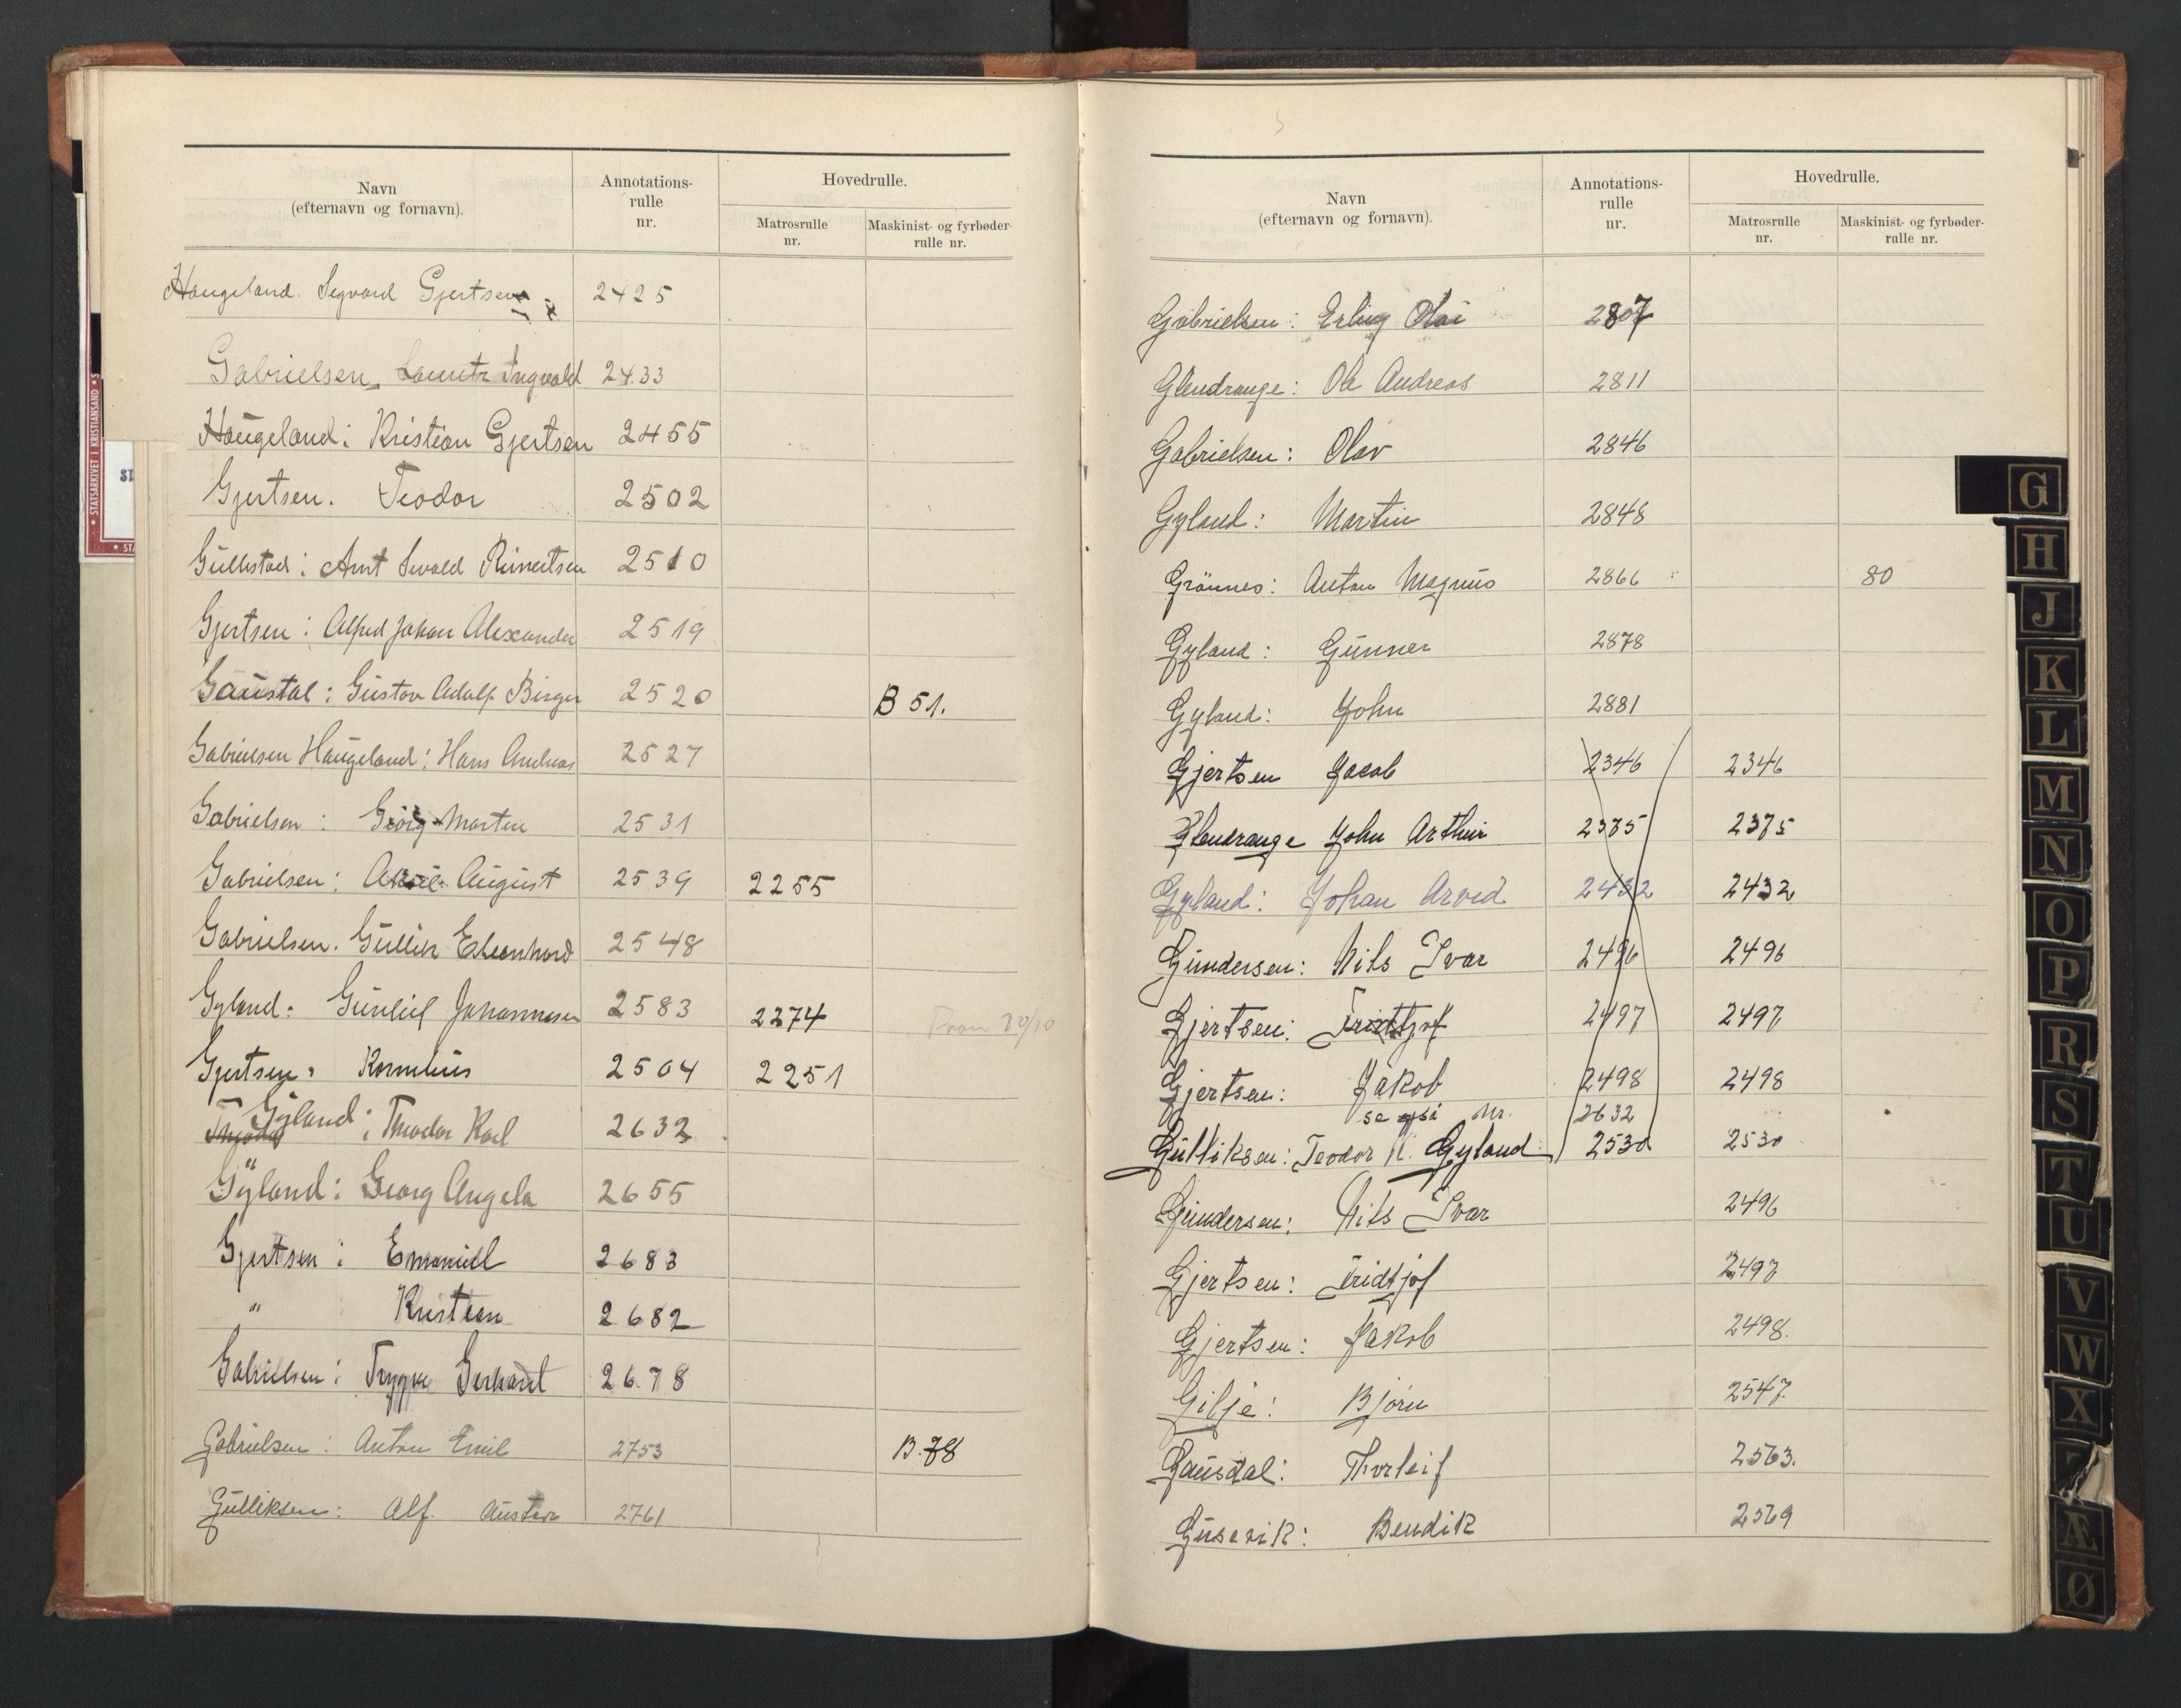 Navn
(efternavn og fornavn).
Annotations-
rulle
nr.
Hovedrulle.
Matrosrulle
nr.
Maskinist- og fyrbøder-
rulle nr.
Haugeland. Segvard Gjertsen 2425
Gabrielsen, Lauritz Ingvald 2433
Haugeland: Kristian Gjertsen 2455
Gjertsen. Teodor 2502
Gullestad: Arnt Sevald Reinertsen 2510
Gjertsen: Alfred Johan Alexander 2519
Gaustal: Gustav Adolf Birger 2520 B 51.
Gabrielsen Haugeland: Hans Andreas 2527
Gabrielsen: Georg Martin 2531
Gabrielsen: August 2539 2255
Gabrielsen. Gullik Eleonhard 2548
Gyland: Johannesen 2583 2274 Fran 20/10
Gjertsen: Kornelius 2504 2251
Gyland: Theodor Karl 2632
Gyland: Georg Angela 2655
Gjertsen: Emanuel 2683
" Kristian 2682
Gabrielsen: Trygve Gerhard 2678
Gabrielsen: Anton Emil 2753 B. 78
Gulliksen: Alf. Gustav 2761
Navn
(efternavn og fornavn).
Annotations-
rulle
nr.
Hovedrulle.
Matrosrulle
nr.
Maskinist- og fyrbøder-
rulle nr.
Gabrielsen: Erling Olai 2807
Glendrange: Ole Andreas 2811
Gabrielsen: Olav 2846
Gyland: Martin 2848
Grönnes: Anton Magnus 2866 80
Gyland: Gunner 2878
Gyland: John 2881
Gjertsen Jacob 2346 2346
Glendrange John Arthur 2375 2375
Gyland: Johan Arvid 2432 2432
Gundersen: Nils Ivar 2496 2496
Gjertsen: Fridtjof 2497 2497
Gjertsen: Jakob 2498 2498
se også Nr. 2632
Gulliksen: Teodor K. Gyland 2530 2530
Gundersen: Nils Ivar 2496
Gjertsen: Fridtjof 2497
Gjertsen: Jakob 2498.
Gilje: Bjørn 2547.
Gausdal: Thorleif 2563.
Gusevik: Bendik 2569
STATSARKIVET I KRISTIANSAND
G
H
J
K
L
M
N
O
P
R
S
T
U
V
W
X
Æ
Ø